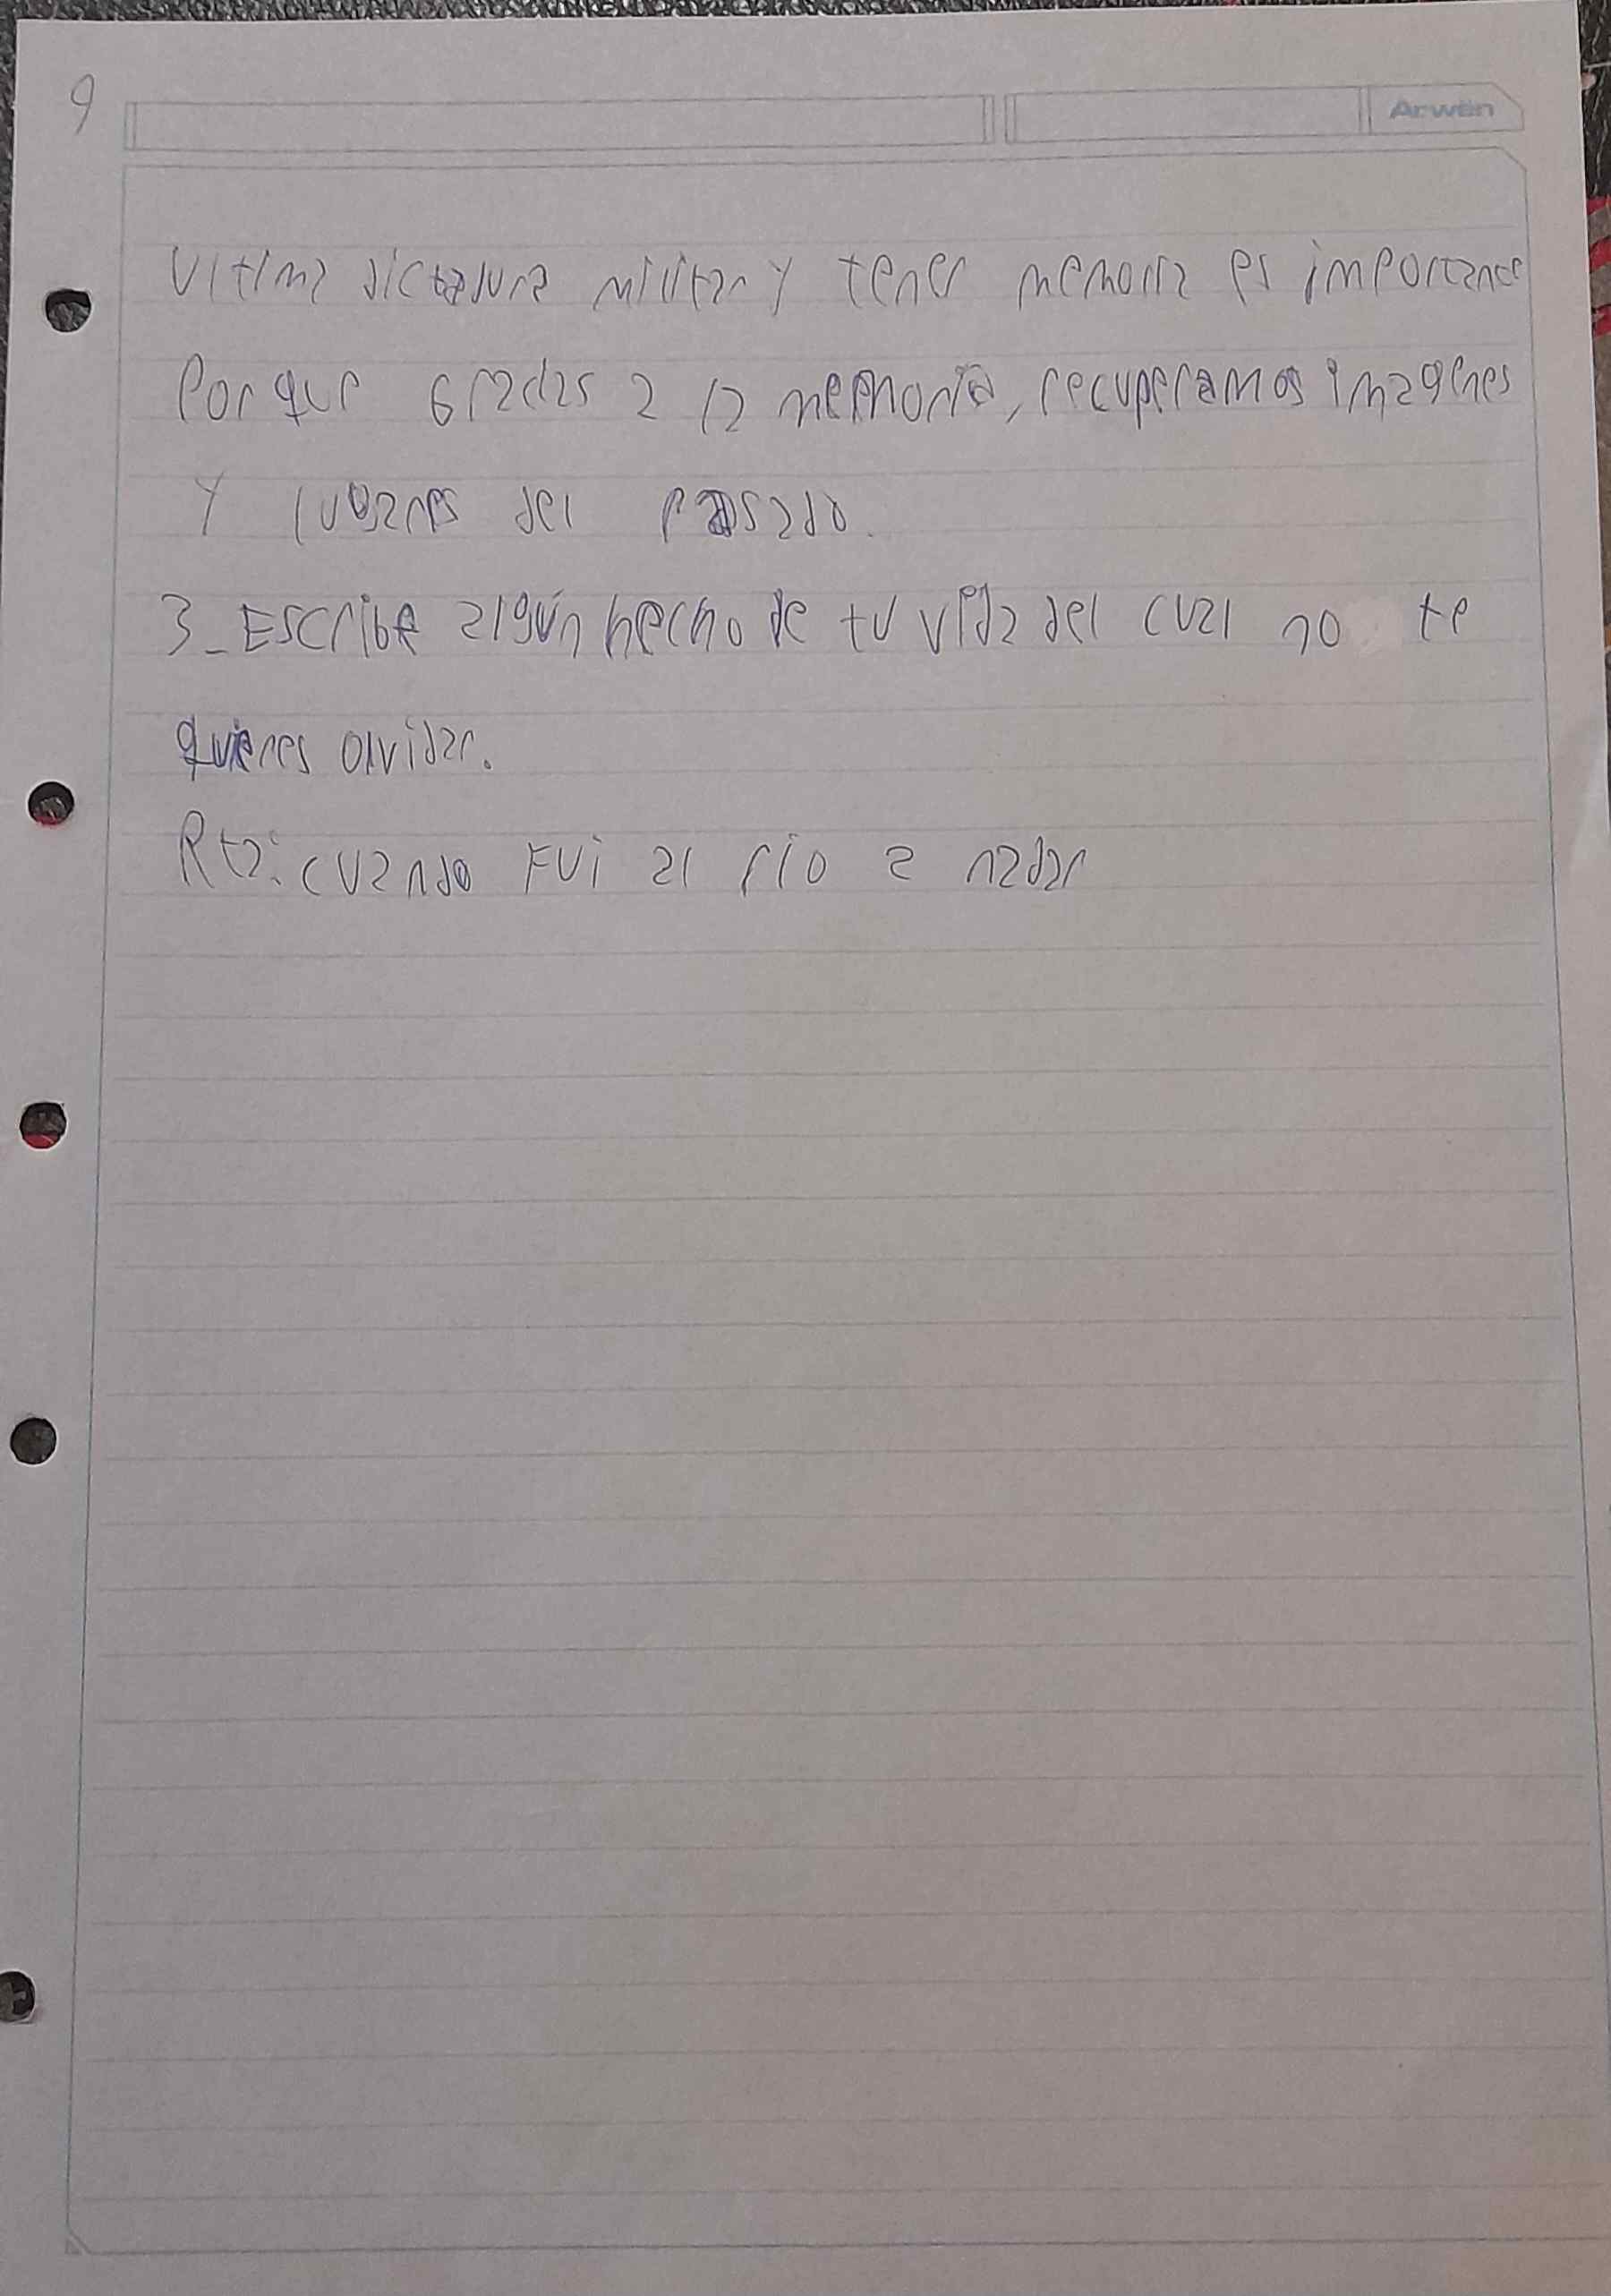 9
Arwen
Ultima dictadura militar y tener memoria es importance
Porque Gracias a la memoria, recuperamos imagenes
Y lugares del pasado.
3_Escribe algún hecho de tu vida del cual no te
quieres olvidar.
Rta: cuando Fui al río a nadar